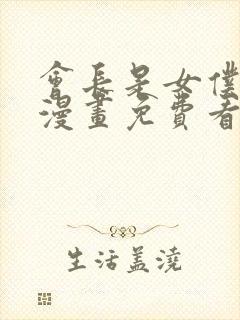 會長是女僕
漫畫免費看
生活盖澆